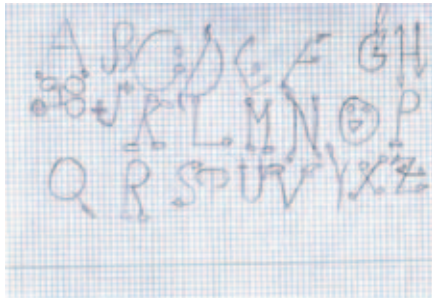 A B C D E F G H
J K L M N O P
Q R S T U V Y X Z